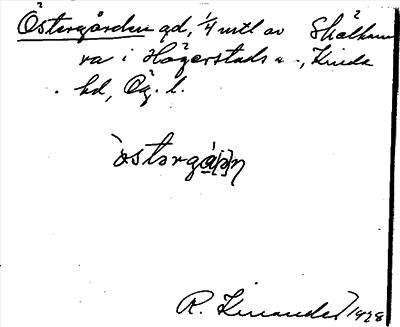 Östergården gd, 1/4 mtl av Skälhem
ra i Hägerstads s n., Kinda
hd, Ög. l.
R. Kinander 1928